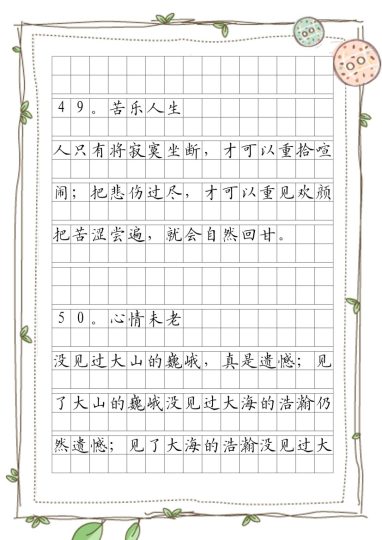 49。苦乐人生
人只有将寂寞坐断，才可以重拾喧
闹；把悲伤过尽，才可以重见欢颜
把苦涩尝遍，就会自然回甘。
50。心情未老
没见过大山的巍峨，真是遗憾；见
了大山的巍峨没见过大海的浩瀚仍
然遗憾；见了大海的浩瀚没见过大